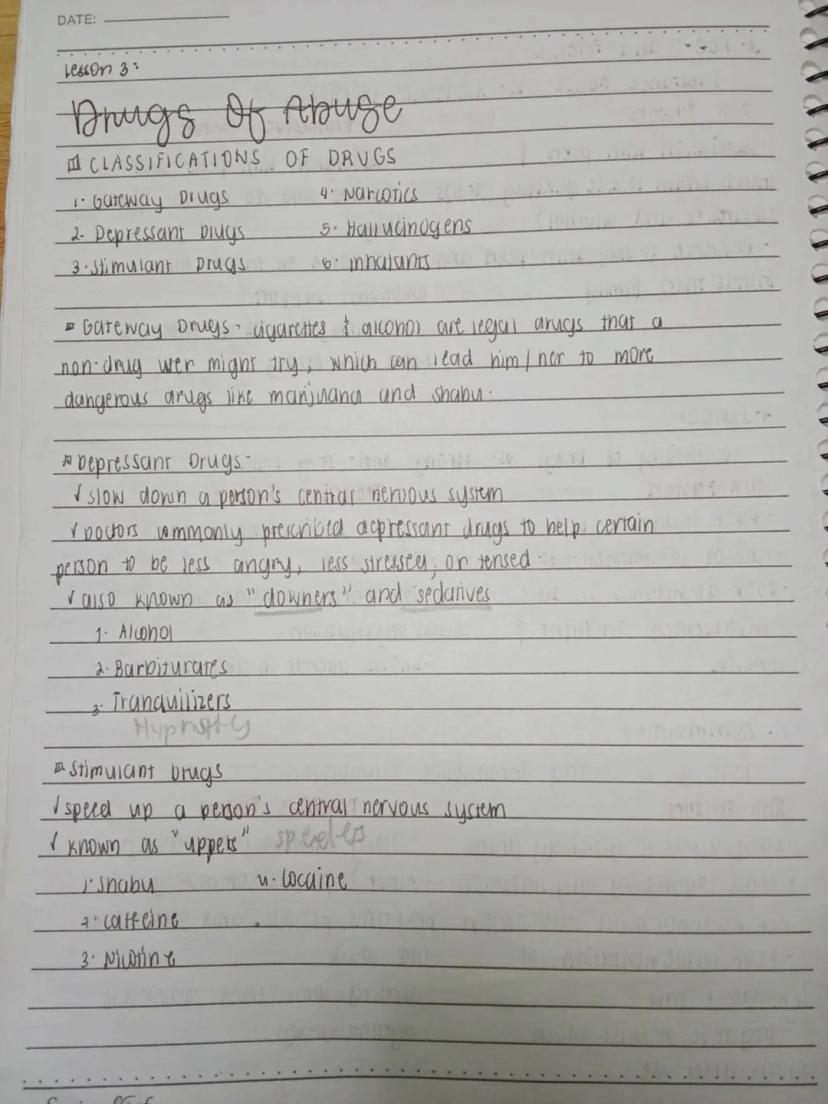 DATE:
Lesson 3:
Drugs Of Abuse
CLASSIFICATIONS OF DRUGS
1. Gateway Drugs 4. Narcotics
2. Depressant Drugs 5. Hallucinogens
3. Stimulant Drugs 6. Inhalants
Gateway Drugs - cigarettes & alcohol are legal drugs that a
non-drug user might try, which can lead him/her to more
dangerous drugs like marijuana and shabu.
Depressant Drugs -
✓ slow down a person's central nervous system
✓ Doctors commonly prescribed depressant drugs to help certain
person to be less angry, less stressed, or tensed.
✓ also known as "downers" and sedatives
1. Alcohol
2. Barbiturates
3. Tranquilizers
Stimulant Drugs
✓ speed up a person's central nervous system
✓ known as "uppers"
1. Shabu 4. Cocaine
2. Caffeine
3. Nicotine